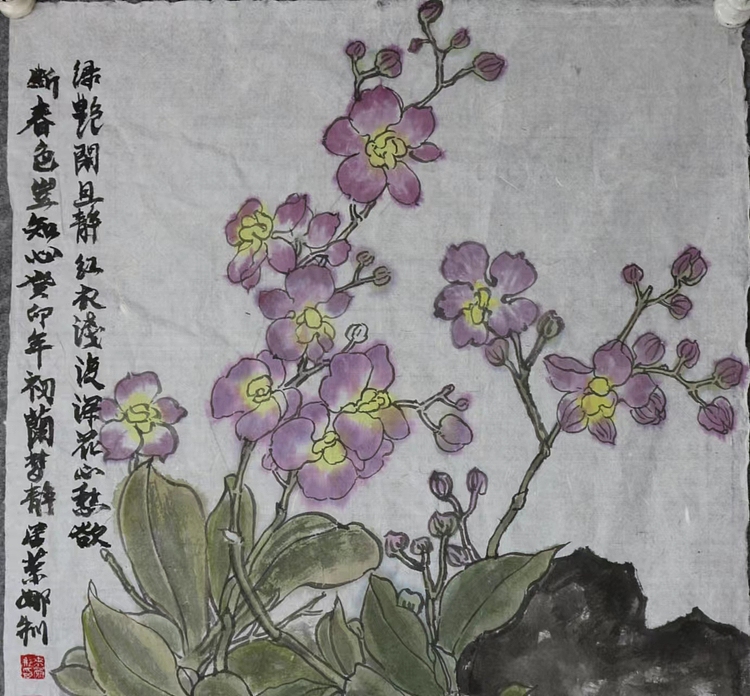 绿艳闲且静红衣浅复深花心愁欲
断春色岂知心癸卯年初兰梦静居叶娜制